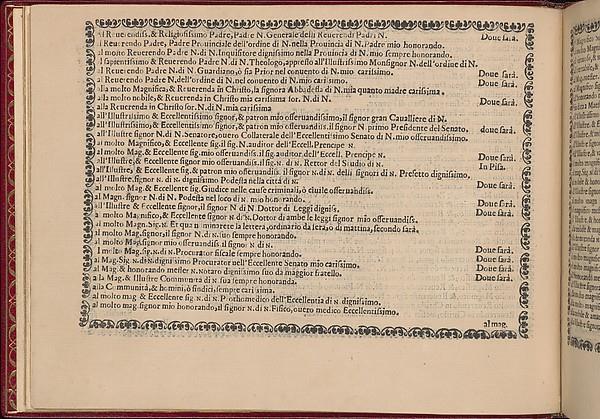 Al Reuerendiss. & Religiosissimo Padre, Padre N. Generale delli Reuerendi Padri N. Doue sarà.
al Reuerendo Padre, Padre Prouinciale dell'ordine di N. nella Prouincia di N. Padre mio honorando.
al molto Reuerendo Padre N. di N. Inquisitore dignissimo nella Prouincia di N. mio sempre honorando.
al sapientissimo & Reuerendo Padre N. di N. Theologo, appresso all'Illustrissimo Monsignor N. dell'ordine di N.
al Reuerendo Padre N. di N. Guardiano, ò sia Prior nel conuento di N. mio carissimo. Doue sarà.
al Reuerendo Padre N. dell'ordine di N. nel conuento di N. mio carissimo. Doue sarà.
alla molto Magnifica, & Reuerenda in Christo, la signora Abbadessa di N. mia quanto madre carissima.
alla molto nobile, & Reuerenda in Christo mia carissima sor. N. di N. Doue sarà.
alla Reuerenda in Christo sor. N. di N. mia carissima
all'Illustrissimo & Eccellentissimo signor, & patron mio osseruandissimo, il signor gran Caualliere di N.
all'Illustrissimo, & Eccellentissimo signor, & patron mio osseruandiss. il signor N. primo Presidente del Senato. doue sarà.
all'Illustre signor N. di N. Senatore, ouero Collaterale dell'Eccellentissimo Senato di N. mio osseruandissimo.
al molto Magnifico, & Eccellente sig. il sig. N. auditor dell'Eccell. Prencipe N.
al molto Mag. & Eccellente sig. mio osseruandiss. il sig. auditor dell'Eccell. Prencipe N. Doue sarà.
all'Illustre, & Eccellente signor mio osseruandiss. il sig. N. di N. Rettor del Studio di N. In Pisa.
all'Illustre, & Eccellente sig. & patron mio osseruandiss. il signor N. di N. delli signori di N. Prefetto dignissimo.
all'Illustre, signor N. di N. dignissimo Podestà nella città di N. Doue sarà.
al molto Mag. & Eccellente sig. Giudice nelle cause criminali, ò ciuile osseruandiss.
al Magn. signor N. di N. Podestà nel loco di N. mio honorando. Doue sarà.
all'Illustre & Eccellente signor, il signor N. di N. Dottor di Leggi digniss. Doue sarà.
al molto Magnifico, & Eccellente signor N. di N. Dottor di ambe le leggi signor mio osseruandiss.
al molto Magn. Sig. N. Et qua numerete la lettera, ordinario da sera, o di mattina, secondo sarà.
al molto Mag. signor, il signor N. di N. suo sempre honorando.
al molto Mag. signor mio osseruandiss. il signor N. di N. Doue sarà.
al molto Mag. sig. N. di N. Procurator fiscale sempre honorando. Doue sarà.
al Mag. Sig. N. di N. dignissimo Procurator nell'Eccellente Senato mio carissimo. Doue sarà.
al Mag. & honorando messer N. Notaro dignissimo suo da maggior fratello. Doue sarà.
a la Mag. & Illustre Communità di N. sua sempre honoranda.
alla Communità, & homini, ò sindici, sempre carissima.
al molto mag & Eccellente sig. N. di N. Protomedico dell'Eccellentia di N. dignissimo.
al molto mag. signor mio honorando, il signor N. di N. Fisico, ouero medico Eccellentissimo.
al mag.